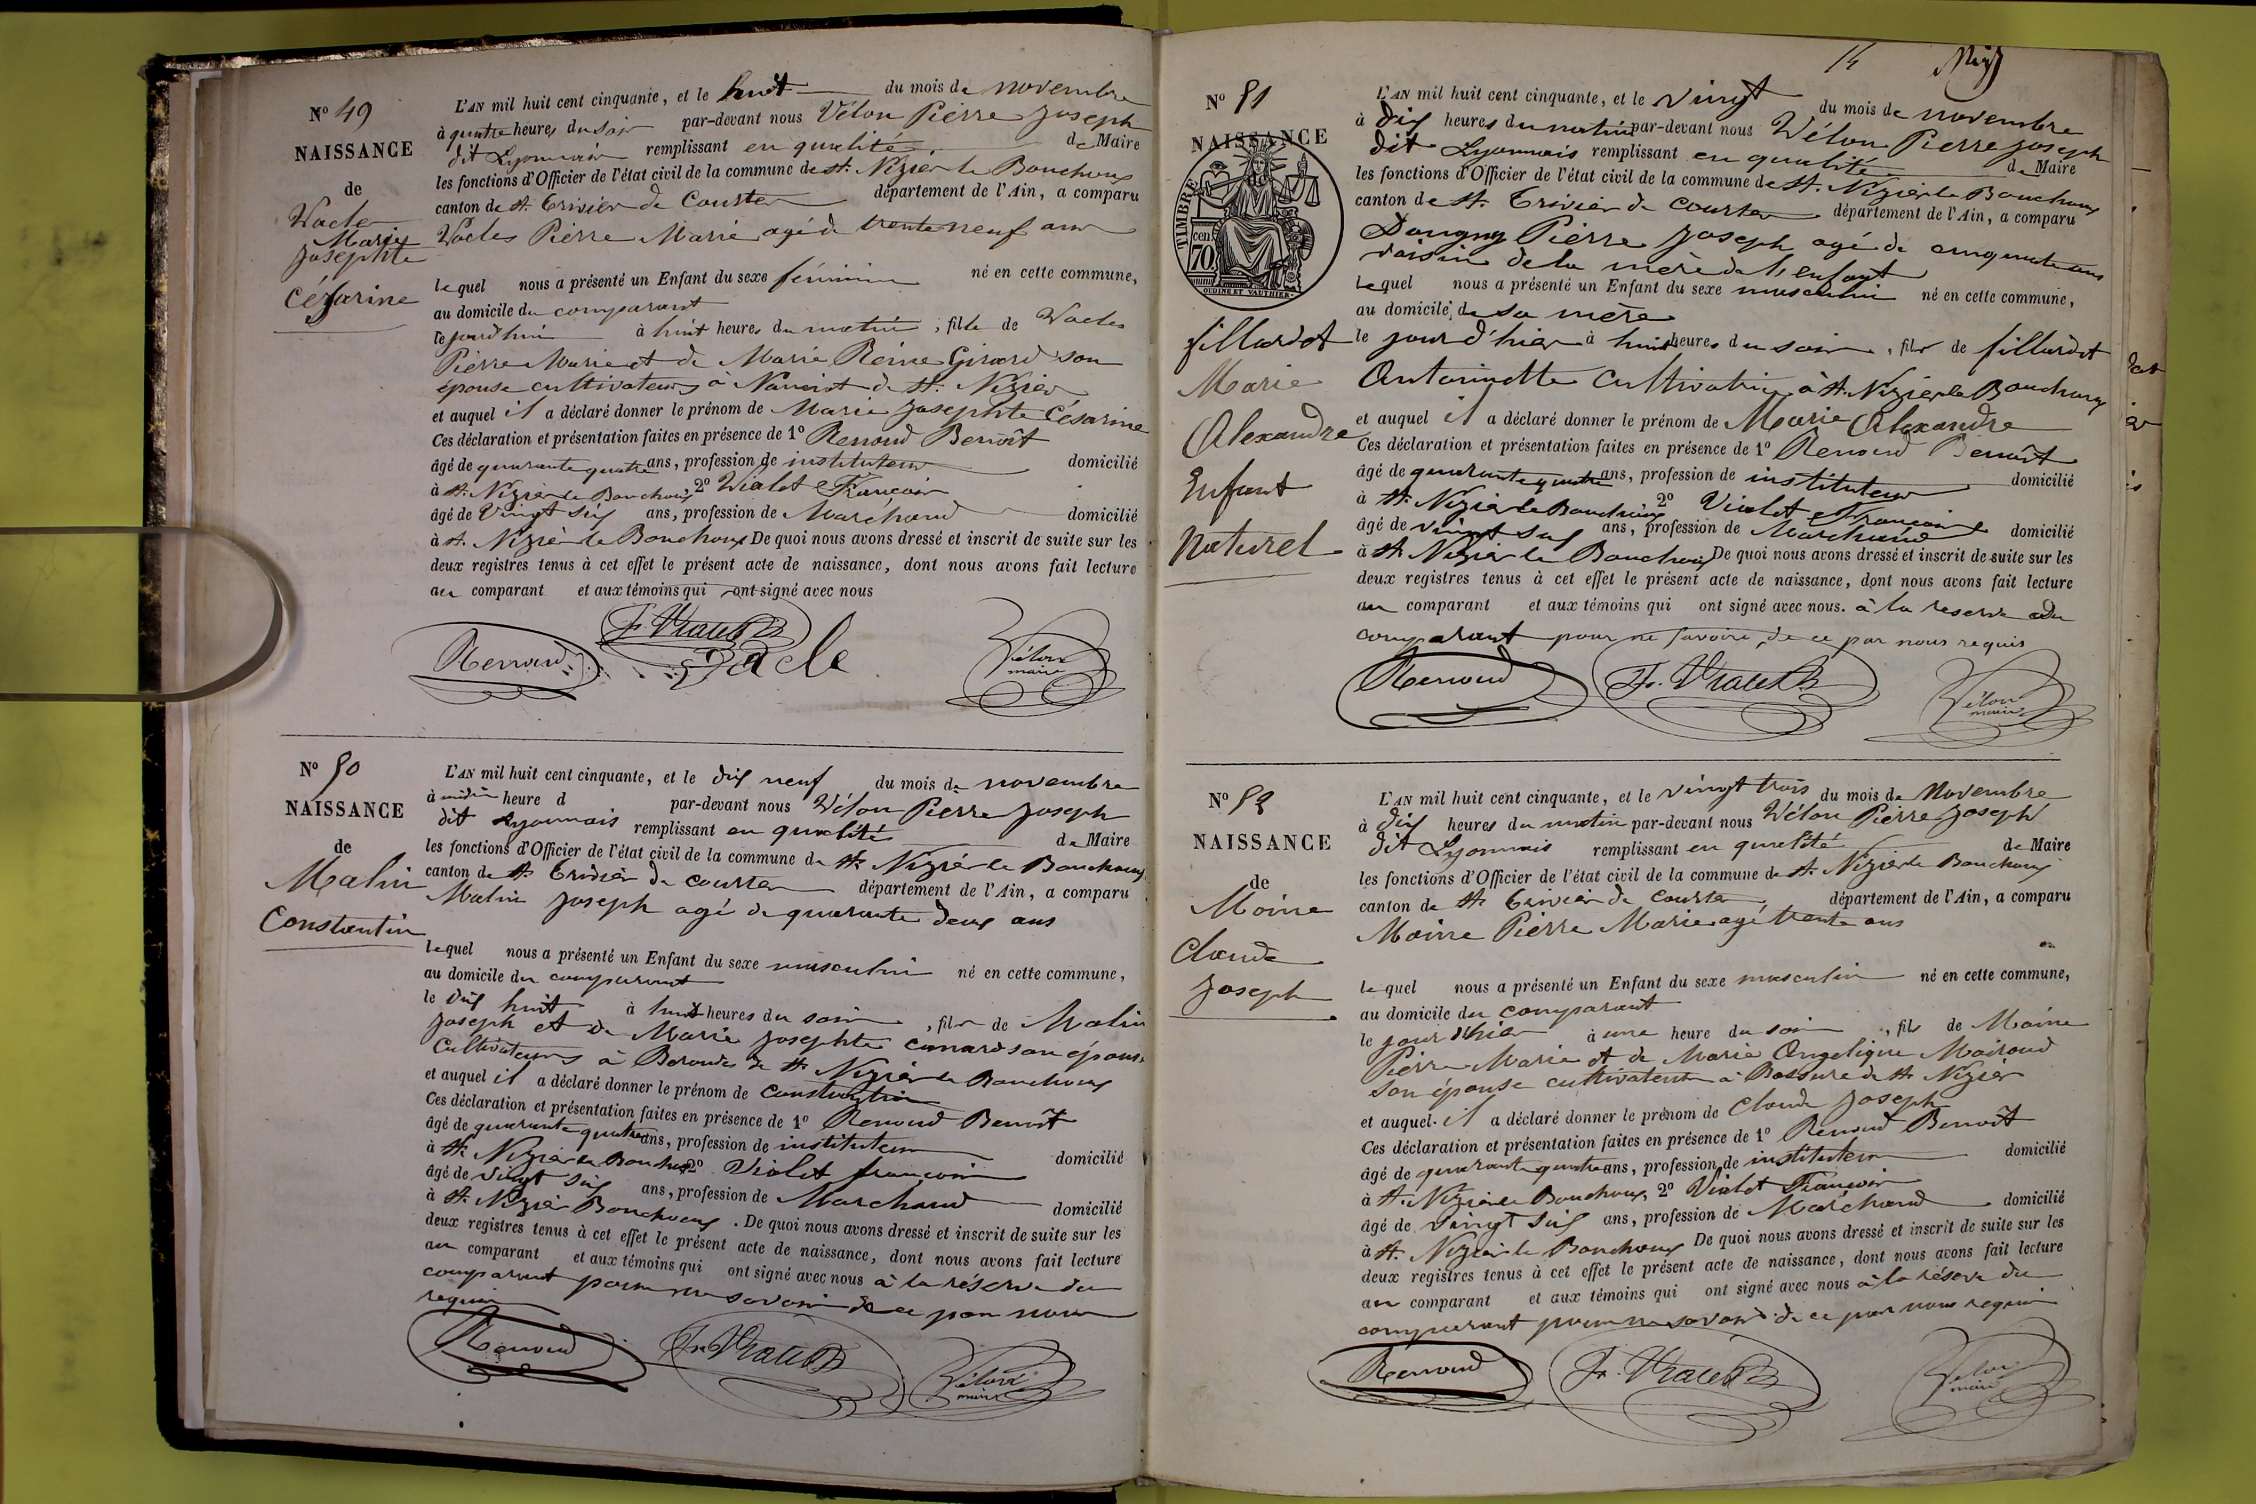 N° 49
NAISSANCE
de
Vacle
Marie
Josephte
Cézarine
L'AN mil huit cent cinquante, et le huit du mois de novembre
à quatre heures du soir par-devant nous Vélon Pierre Joseph
dit Lyonnais remplissant en qualité de Maire
les fonctions d'Officier de l'état civil de la commune de St. Nizier le Bouchoux
canton de St. Trivier de Courtes département de l'Ain, a comparu
Vacles Pierre Marie agé de trente neuf ans
lequel nous a présenté un Enfant du sexe féminin né en cette commune,
au domicile du comparant
le jourd'hui à huit heures du matin, fille de Vacles
Pierre Marie et de Marie Reine Girard son
épouse cultivateurs à de St. Nizier
et auquel il a déclaré donner le prénom de Marie Josephte Césarine
Ces déclaration et présentation faites en présence de 1° Renoud Benoît
âgé de quarante quatre ans, profession de instituteur domicilié
à St. Nizier le Bouchoux, 2° Violet François
âgé de vingt six ans, profession de Marchand domicilié
à St. Nizier le Bouchoux De quoi nous avons dressé et inscrit de suite sur les
deux registres tenus à cet effet le présent acte de naissance, dont nous avons fait lecture
au comparant et aux témoins qui ont signé avec nous
Renoud Vacle Vélon maire
N° 50
NAISSANCE
de
Malin
Constantin
L'AN mil huit cent cinquante, et le dix neuf du mois de novembre
à midi heure d par-devant nous Vélon Pierre Joseph
dit Lyonnais remplissant en qualité de Maire
les fonctions d'Officier de l'état civil de la commune de St. Nizier le Bouchoux
canton de St Trivier de Courtes département de l'Ain, a comparu
Malin Joseph agé de quarante deux ans
lequel nous a présenté un Enfant du sexe masculin né en cette commune,
au domicile du comparant
le dix huit à huit heures du soir, fils de Malin
Joseph et de Marie Josephte son épouse
Cultivateurs à de St. Nizier le Bouchoux
et auquel il a déclaré donner le prénom de Constantin
Ces déclaration et présentation faites en présence de 1° Renoud Benoît
âgé de quarante quatre ans, profession de instituteur domicilié
à St. Nizier le Bouchoux 2° Violet françois
âgé de vingt six ans, profession de Marchand domicilié
à St. Nizier Bouchoux. De quoi nous avons dressé et inscrit de suite sur les
deux registres tenus à cet effet le présent acte de naissance, dont nous avons fait lecture
au comparant et aux témoins qui ont signé avec nous à la réserve du
comparant pour ne savoir de ce par nous
requis
Renoud Vélon maire
14
N° 51
NAISSANCE
TIMBRE
cen. 70.
OUDINE ET VAUTHIER
fillardet
Marie
Alexandre
Enfant
Naturel
L'AN mil huit cent cinquante, et le vingt du mois de novembre
à dix heures du matin par-devant nous Vélon Pierre Joseph
dit Lyonnais remplissant en qualité de Maire
les fonctions d'Officier de l'état civil de la commune de St. Nizier le Bouchoux
canton de St. Trivier de Courtes département de l'Ain, a comparu
Dougny Pierre Joseph agé de cinquante ans
voisin de la mère de l'enfant
lequel nous a présenté un Enfant du sexe masculin né en cette commune,
au domicile de sa mère
le jour d'hier à huit heures du soir, fils de fillardet
Antoinette Cultivatrice à St. Nizier le Bouchoux
et auquel il a déclaré donner le prénom de Marie Alexandre
Ces déclaration et présentation faites en présence de 1° Renoud Benoît
âgé de quarante quatre ans, profession de instituteur domicilié
à St. Nizier le Bouchoux 2° Violet François
âgé de vingt six ans, profession de Marchand domicilié
à St Nizier le Bouchoux De quoi nous avons dressé et inscrit de suite sur les
deux registres tenus à cet effet le présent acte de naissance, dont nous avons fait lecture
au comparant et aux témoins qui ont signé avec nous. à la reserve du
comparant pour ne savoir, de ce par nous requis
Renoud Vélon maire
N° 52
NAISSANCE
de
Moine
Claude
Joseph
L'AN mil huit cent cinquante, et le vingt trois du mois de Novembre
à dix heures du matin par-devant nous Vélon Pierre Joseph
dit Lyonnais remplissant en qualité de Maire
les fonctions d'Officier de l'état civil de la commune de St. Nizier le Bouchoux
canton de St Trivier de Courtes, département de l'Ain, a comparu
Moine Pierre Marie agé trente ans
lequel nous a présenté un Enfant du sexe masculin né en cette commune,
au domicile du comparant
le jour d'hier à une heure du soir, fils de Moine
Pierre Marie et de Marie Angelique Moiroud
son épouse cultivateurs à de St Nizier
et auquel il a déclaré donner le prénom de Claude Joseph
Ces déclaration et présentation faites en présence de 1° Renoud Benoît
âgé de quarante quatre ans, profession de instituteur domicilié
à St. Nizier le Bouchoux, 2° Violet François
âgé de vingt six ans, profession de Marchand domicilié
à St. Nizier le Bouchoux De quoi nous avons dressé et inscrit de suite sur les
deux registres tenus à cet effet le présent acte de naissance, dont nous avons fait lecture
au comparant et aux témoins qui ont signé avec nous à la réserve du
comparant pour ne savoir de ce par nous requis
Renoud Vélon maire